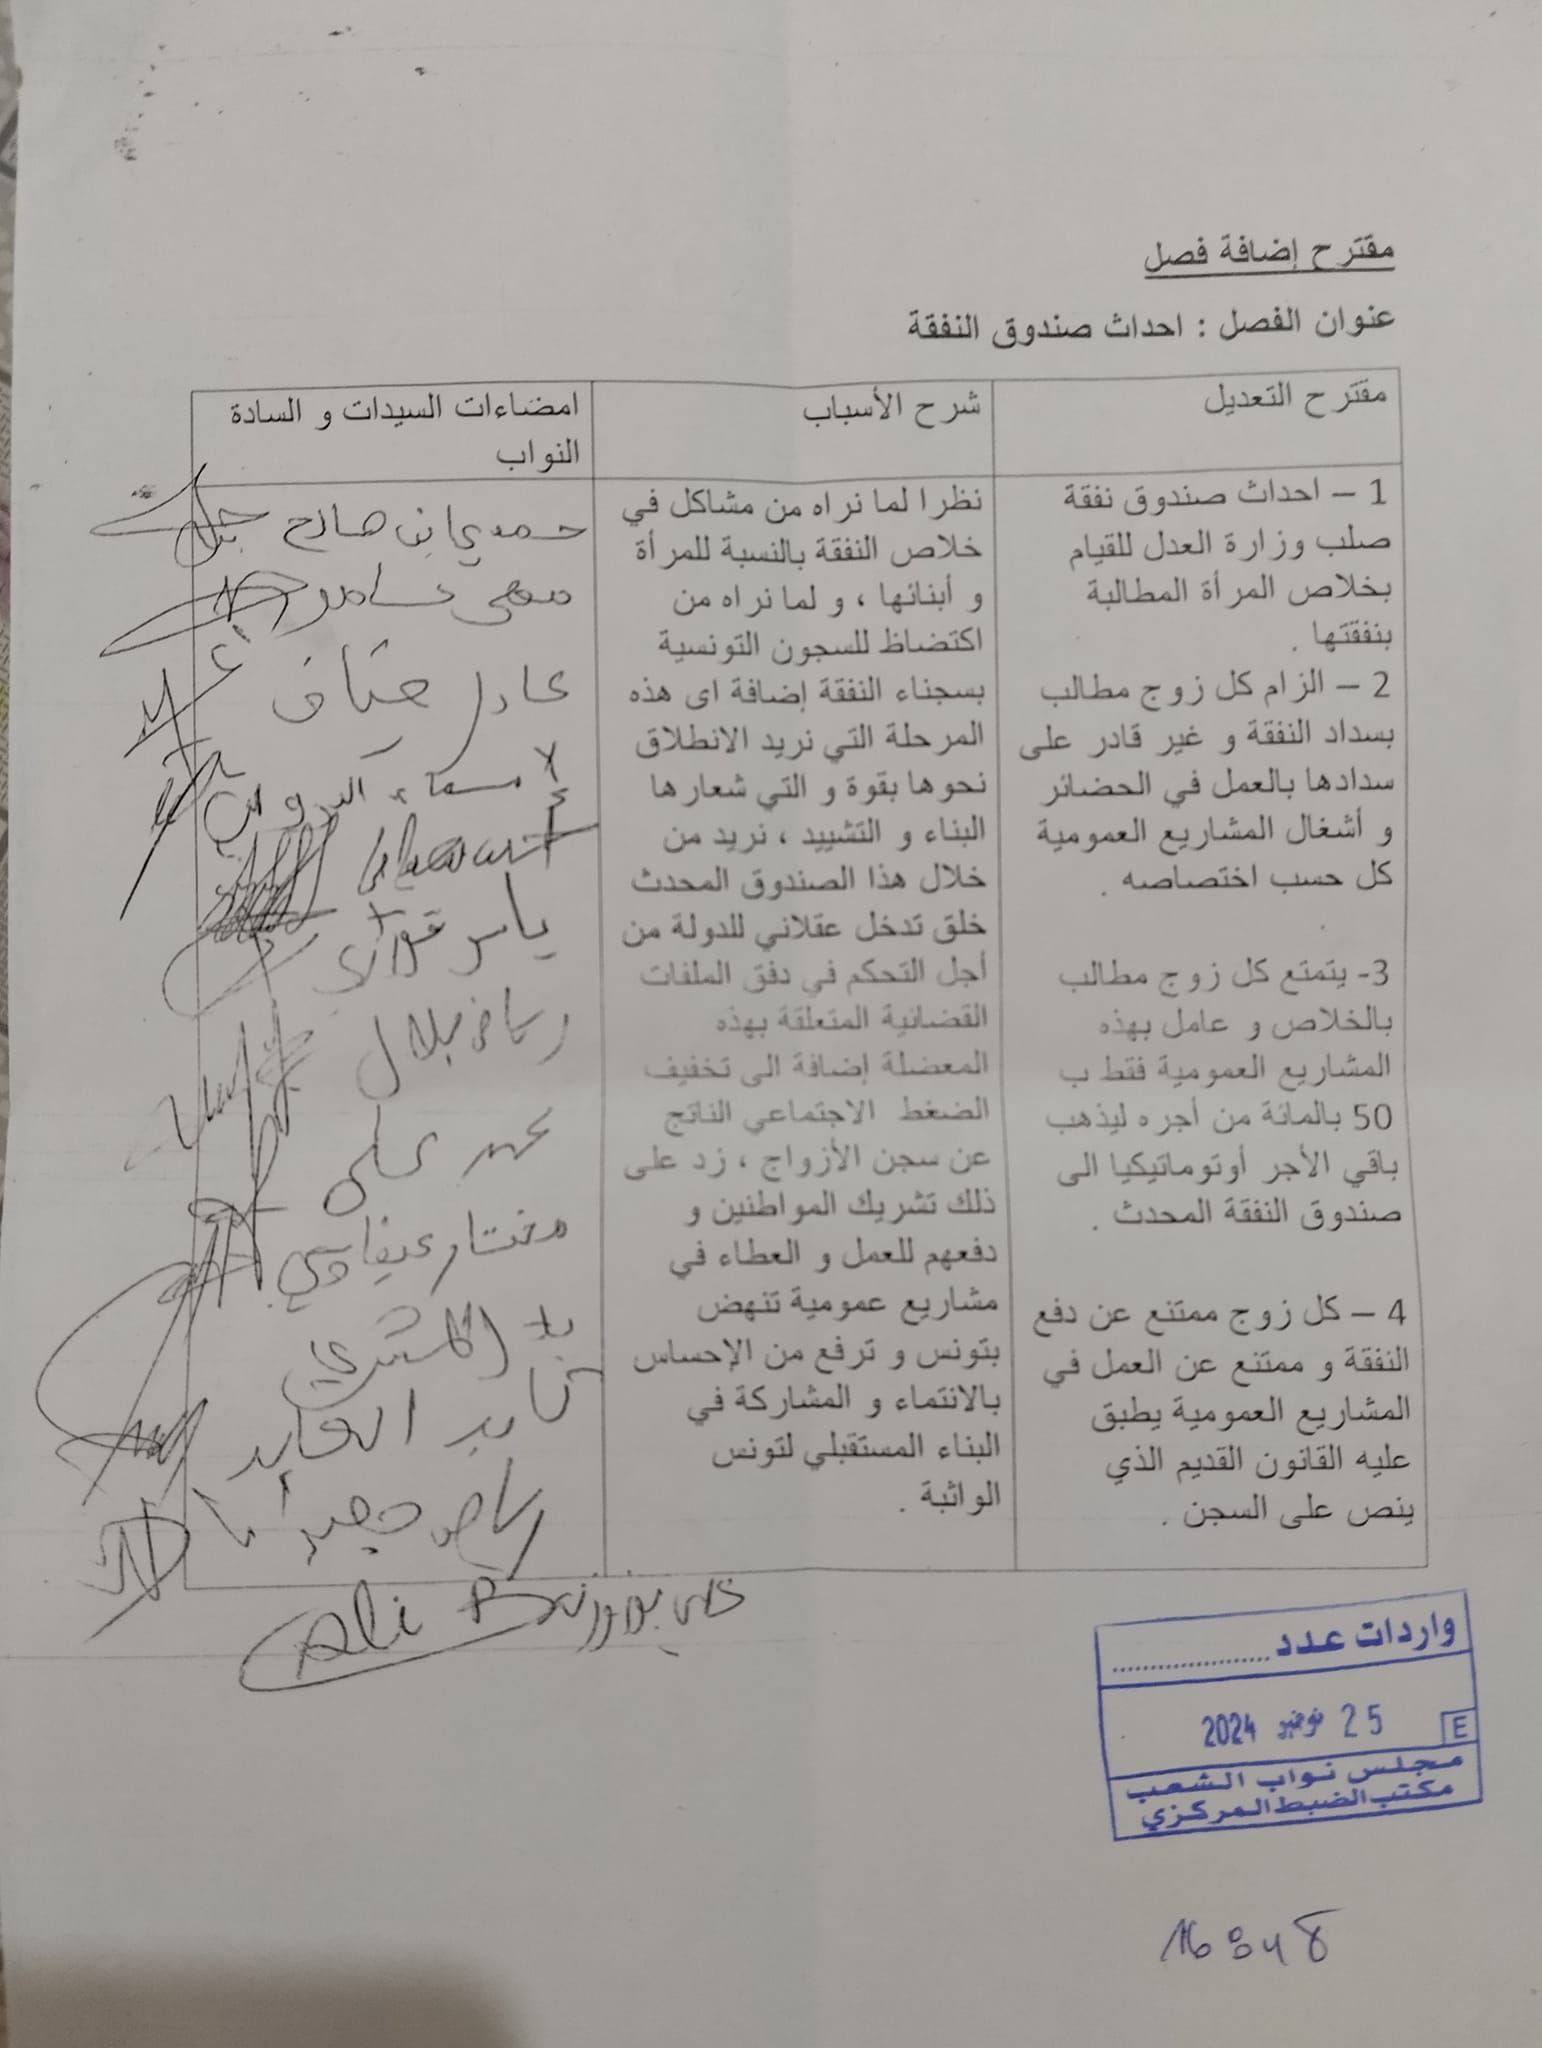 مقترح إضافة فصل
عنوان الفصل : احداث صندوق النفقة
مقترح التعديل
شرح الأسباب
امضاءات السيدات و السادة
النواب
1 – احداث صندوق نفقة
صلب وزارة العدل للقيام
بخلاص المرأة المطالبة
بنفقتها .
2 – الزام كل زوج مطالب
بسداد النفقة و غير قادر على
سدادها بالعمل في الحضائر
و أشغال المشاريع العمومية
كل حسب اختصاصه .
3- يتمتع كل زوج مطالب
بالخلاص و عامل بهذه
المشاريع العمومية فقط ب
50 بالمائة من أجره ليذهب
باقي الأجر أوتوماتيكيا الى
صندوق النفقة المحدث .
4 – كل زوج ممتنع عن دفع
النفقة و ممتنع عن العمل في
المشاريع العمومية يطبق
عليه القانون القديم الذي
ينص على السجن .
نظرا لما نراه من مشاكل في
خلاص النفقة بالنسبة للمرأة
و أبنائها ، و لما نراه من
اكتضاظ للسجون التونسية
بسجناء النفقة إضافة اى هذه
المرحلة التي نريد الانطلاق
نحوها بقوة و التي شعارها
البناء و التشييد ، نريد من
خلال هذا الصندوق المحدث
خلق تدخل عقلاني للدولة من
أجل التحكم في دفق الملفات
القضائية المتعلقة بهذه
المعضلة إضافة الى تخفيف
الضغط الاجتماعي الناتج
عن سجن الأزواج ، زد على
ذلك تشريك المواطنين و
دفعهم للعمل و العطاء في
مشاريع عمومية تنهض
بتونس و ترفع من الإحساس
بالانتماء و المشاركة في
البناء المستقبلي لتونس
الواثبة .
حمدي بن صالح
عادل ضياف
ياسر قوراري
رياض بلال
محمد علي
مختار عيفاوي
رياض جعيدان
علي بوزوزية
Ali
واردات عدد ....................
25 نوفمبر 2024
E
مجلس نواب الشعب
مكتب الضبط المركزي